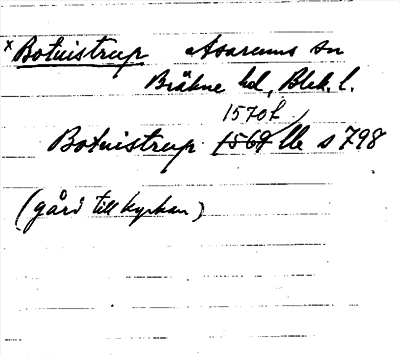 x Botnistrup Asarums sn
Bräkne hd, Blek. l.
1570 f/
Botnistrup 1569 Ub s 798
(gård till kyrkan)